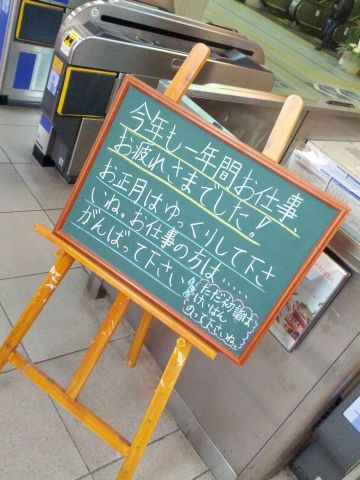 今年も一年間お仕事、
お疲れさまでした!
お正月はゆっくりして下さ
いね。お仕事の方は....
がんばって下さい
ただ初詣は
けいはん
のって下さいね。